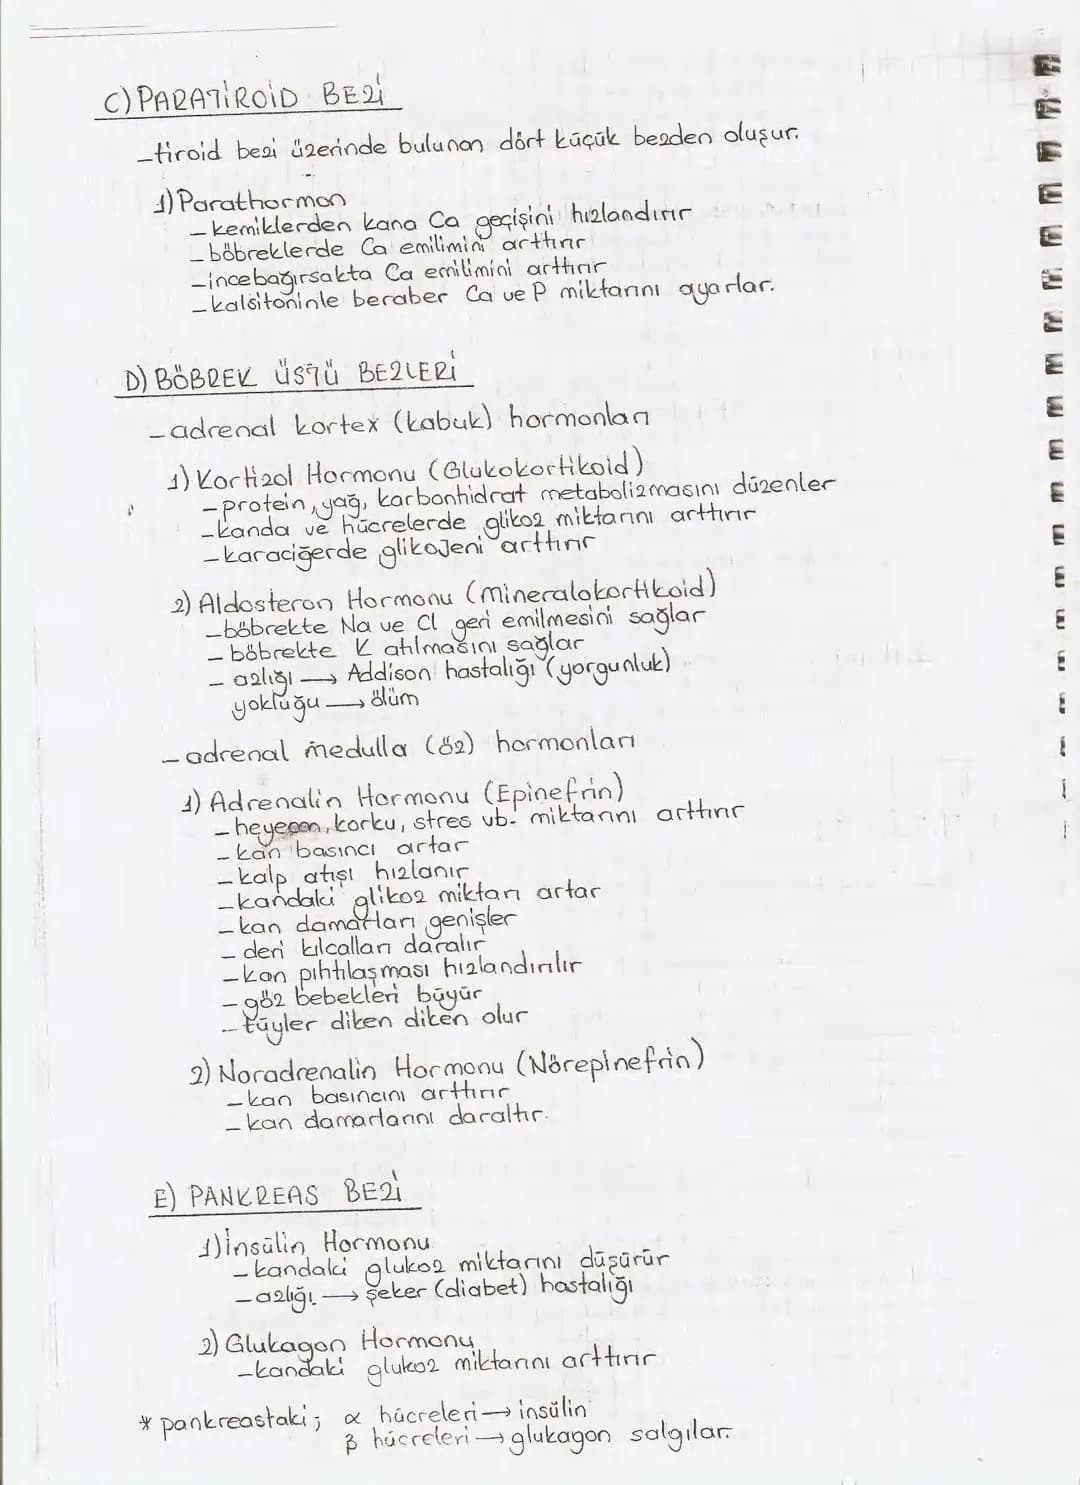 C) PARATİROİD BEZİ
- tiroid bezi üzerinde bulunan dört küçük bezden oluşur.
1) Parathormon
- kemiklerden kana Ca geçişini hızlandırır
- böbreklerde Ca emilimini arttırır
- incebağırsakta Ca emilimini arttırır
- kalsitoninle beraber Ca ve P miktarını ayarlar.
D) BÖBREK ÜSTÜ BEZLERİ
- adrenal kortex (kabuk) hormonları
1) Kortizol Hormonu (Glukokortikoid)
- protein, yağ, karbonhidrat metabolizmasını düzenler
- kanda ve hücrelerde glikoz miktarını arttırır
- karaciğerde glikojeni arttırır
2) Aldosteron Hormonu (mineralokortikoid)
- böbrekte Na ve Cl geri emilmesini sağlar
- böbrekte K atılmasını sağlar
- azlığı → Addison hastalığı (yorgunluk)
yokluğu → ölüm
- adrenal medulla (öz) hormonları
1) Adrenalin Hormonu (Epinefrin)
- heyecan, korku, stres vb. miktarını arttırır
- kan basıncı artar
- kalp atışı hızlanır
- kandaki glikoz miktarı artar
- kan damarları genişler
- deri kılcalları daralır
- kan pıhtılaşması hızlandırılır
- göz bebekleri büyür
- tüyler diken diken olur
2) Noradrenalin Hormonu (Nörepinefrin)
- kan basıncını arttırır
- kan damarlarını daraltır.
E) PANKREAS BEZİ
1) İnsülin Hormonu
- kandaki glukoz miktarını düşürür
- azlığı → şeker (diabet) hastalığı
2) Glukagon Hormonu
- kandaki glukoz miktarını arttırır
* pankreastaki; α hücreleri → insülin
β hücreleri → glukagon salgılar.